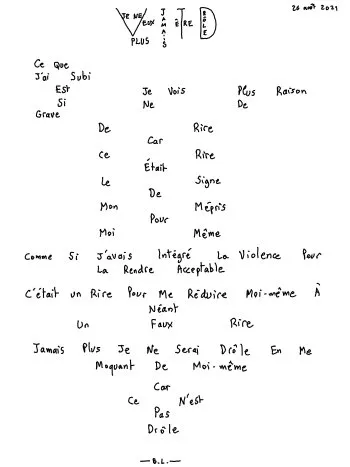 26 août 2021
JE NE
VEUX JAMAIS ÊTRE DRÔLE
PLUS
Ce Que
J'ai Subi
Est Je Vois Plus Raison
Si Ne De
Grave
De Rire
Car
Ce Rire
Était
Le Signe
De
Mon Mépris
Pour
Moi Même
Comme Si J'avais Intégré La Violence Pour
La Rendre Acceptable
C'était un Rire Pour Me Réduire Moi-même À
Néant
Un Faux Rire
Jamais Plus Je Ne Serai Drôle En Me
Moquant De Moi-même
Car
Ce N'est
Pas
Drôle
— B.L. —